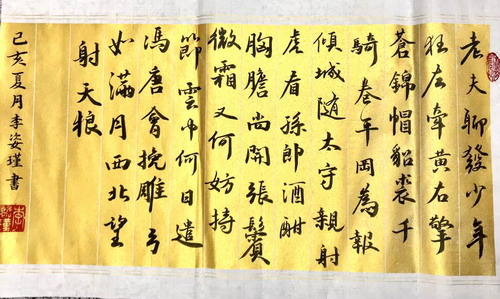 老夫聊發少年
狂左牽黃右擎
蒼錦帽貂裘千
騎卷平岡為報
傾城隨太守親射
虎看孫郎酒酣
胸膽尚開張鬢
微霜又何妨持
節雲中何日遣
馮唐會挽雕弓
如滿月西北望
射天狼
己亥夏月李姿瑾書